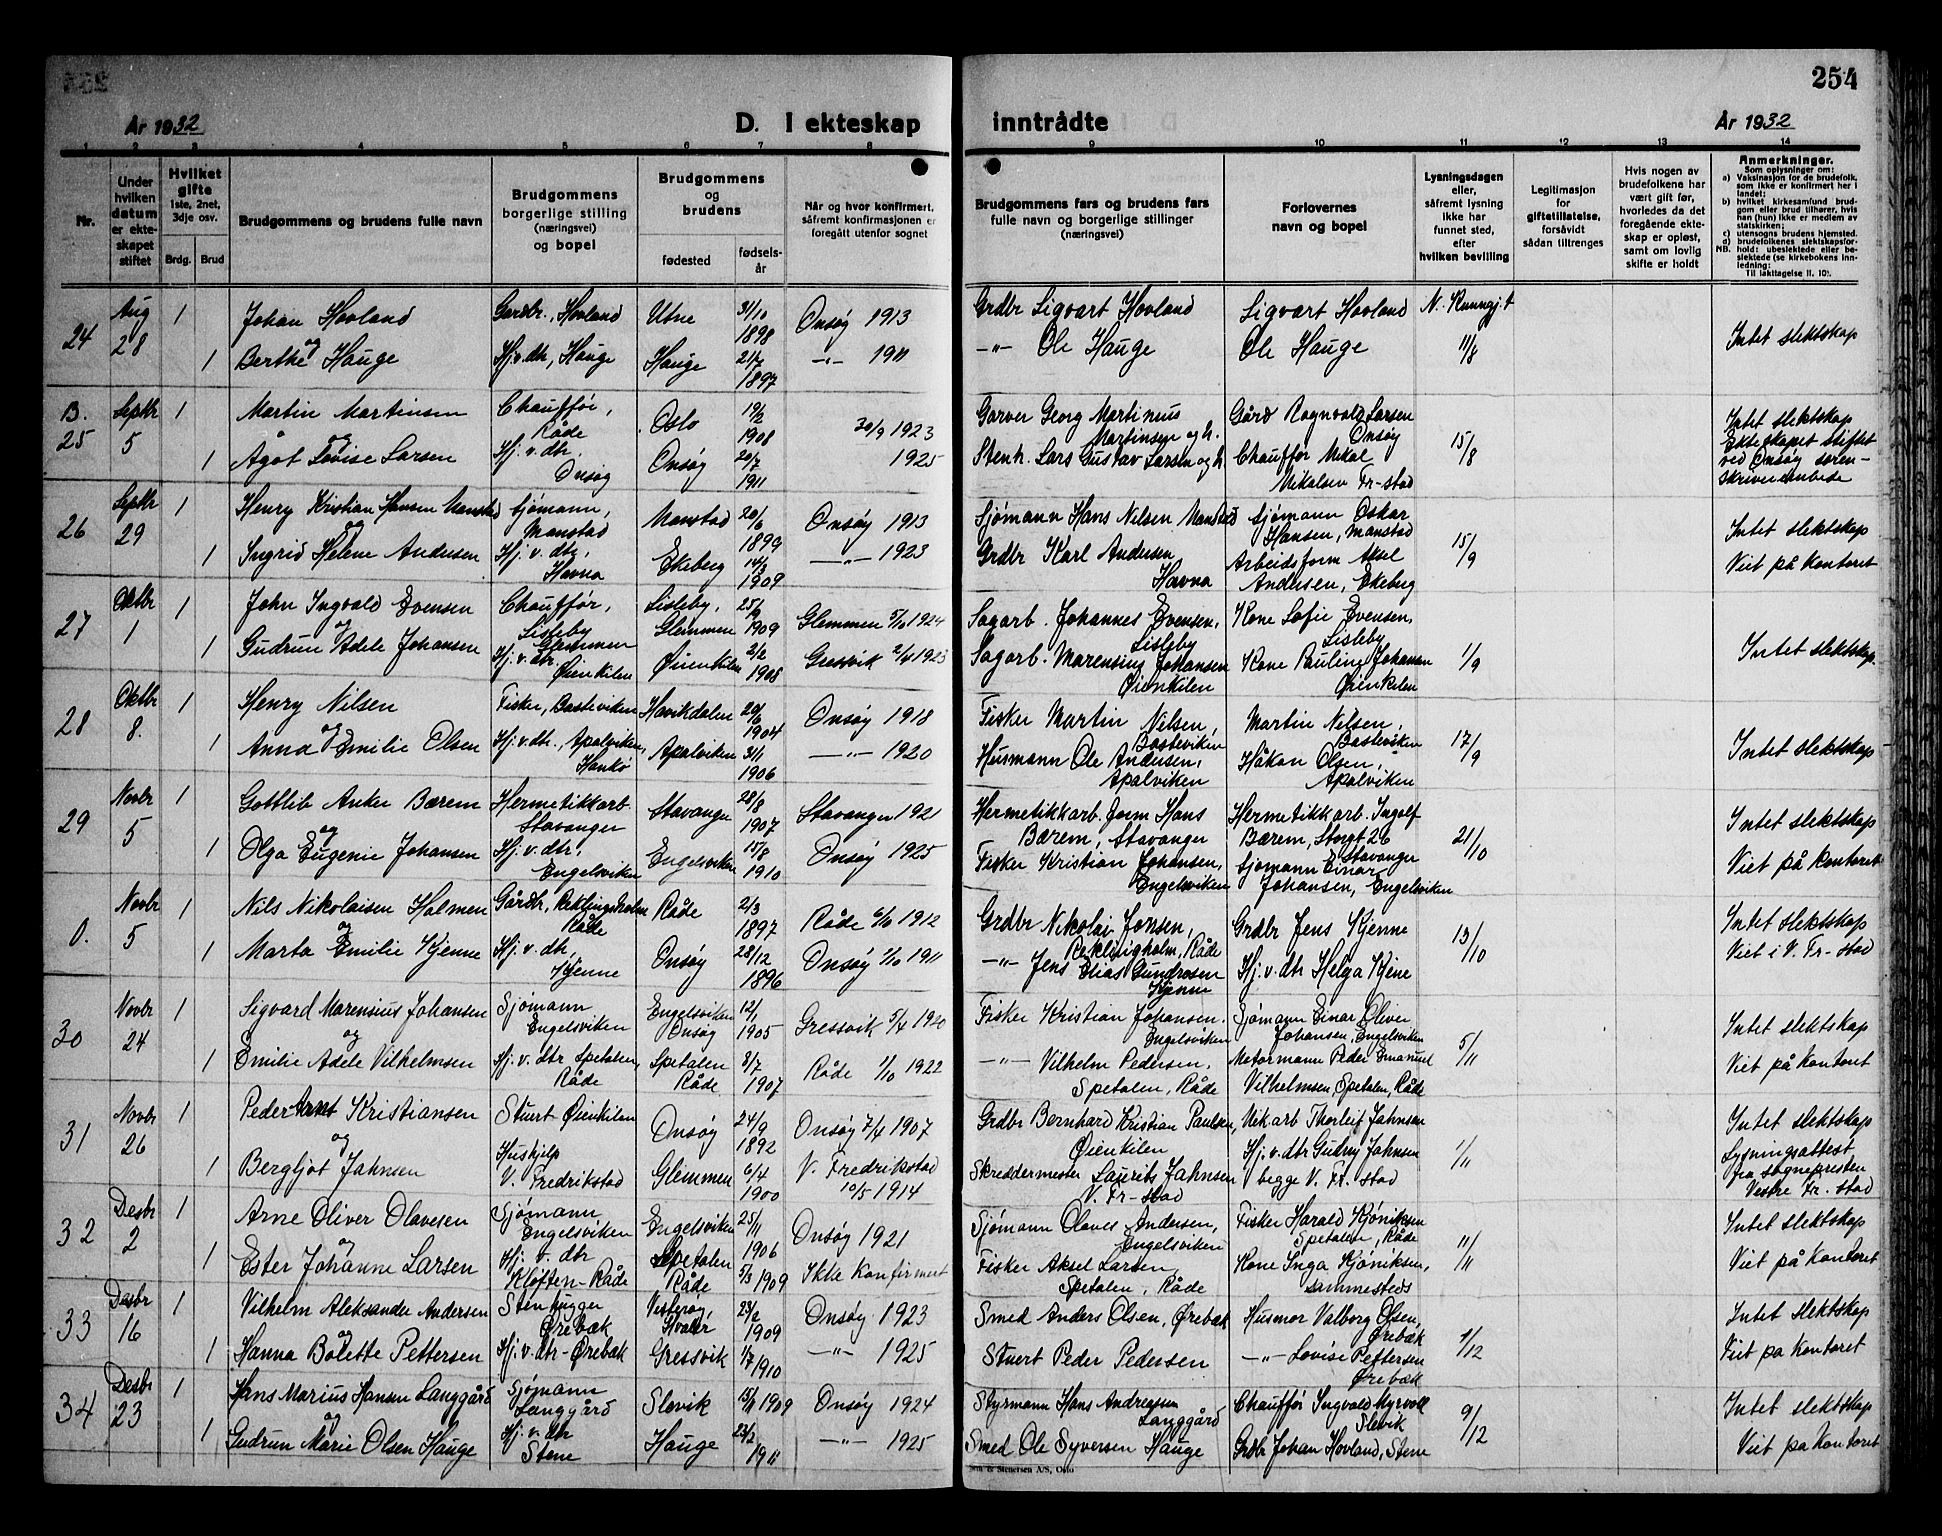 254
År 1932
D. I ekteskap
inntrådte
År 1932
1 2 3 4 5 6 7 8 9 10 11 12 13 14
Nr.
Under hvilken datum er ekteskapet stiftet
Hvilket gifte 1ste, 2net, 3dje osv.
Brdg. Brud
Brudgommens og brudens fulle navn
Brudgommens borgerlige stilling (næringsvei) og bopel
Brudgommens og brudens
fødested
fødselsår
Når og hvor konfirmert, såfremt konfirmasjonen er foregått utenfor sognet
Brudgommens fars og brudens fars fulle navn og borgerlige stillinger (næringsvei)
Forlovernes navn og bopel
Lysningsdagen eller, såfremt lysning ikke har funnet sted, efter hvilken bevilling
Legitimasjon for giftetillatelse, forsåvidt sådan tiltrenges
Hvis nogen av brudefolkene har vært gift før, hvorledes da det foregående ekteskap er opløst, samt om lovlig skifte er holdt
Anmerkninger.
Som oplysninger om:
a) Vaksinasjon for de brudefolk, som ikke er konfirmert her i landet:
b) hvilket kirkesamfund brudgom eller brud tilhører, hvis han (hun) ikke er medlem av statskirken;
c) utensogns brudens hjemsted.
d) brudefolkenes slektskapsforhold: ubeslektede eller beslektede (se kirkebokens innledning:
NB. Til iakttagelse II. 10).
24 Aug 28 1 Johan Hovland Gardbr., Hovland Utne 31/10 1898 Onsøy 1913 Grdbr Sigvart Hovland Sigvart Hovland N. Kunngj.t 11/8 Intet slektskap
og
1 Berthe Hauge Hj.v.dtr, Hauge Hauge 21/7 1897 -"- 1911 -"- Ole Hauge Ole Hauge
B. 25 Septbr 5 1 Martin Martinsen Chauffør, Råde Oslo 19/2 1908 30/9 1923 Garver Georg Martinius Martinsen og h. Gård Ragnvald Larsen Onsøy 15/8 Intet slektskap
og
1 Ågot Lovise Larsen Hj.v.dtr. Onsøy Onsøy 20/7 1911 1925 Stenh. Lars Gustav Larsen og h. Chauffør Mikal Mikalsen Fr-stad Ekteskapet stiftet ved Onsøy sorenskriverembede
26 Septbr 29 1 Henry Kristian Hansen Manstad Sjømann, Manstad Manstad 20/6 1899 Onsøy 1913 Sjømann Hans Nilsen Manstad Sjømann Oskar Hansen, Manstad 15/9 Intet slektskap
og
1 Ingrid Helene Andersen Hj.v.dtr, Havna Ekeberg 14/3 1909 -"- 1923 Grdbr Karl Andersen Havna Arbeidsform Aksel Andersen, Ekeberg Viet på kontoret
27 Oktbr 1 1 John Ingvald Evensen Chauffør, Lisleby Glemmen Lisleby, Glemmen 25/9 1909 Glemmen 5/10 1924 Sagarb. Johannes Evensen, Lisleby Kone Sofie Evensen, Lisleby 1/9 Intet slektskap.
og
1 Gudrun Adele Johansen Hj.v.dtr. Øienkilen Øienkilen 2/2 1908 Gressvik 2/4 1923 Sagarb. Marensius Johansen Øienkilen Kone Pauline Johansen Øienkilen
28 Oktbr 8. 1 Henry Nilsen Fisker, Basteviken Havikdalen 20/6 1904 Onsøy 1918 Fisker Martin Nilsen, Basteviken Martin Nilsen, Basteviken 17/9 Intet slektskap
og
1 Anna Emilie Olsen Hj.v.dtr., Apalviken, Hankø Apalviken 31/1 1906 -"- 1920 Husmann Ole Andersen, Apalviken Håkon Olsen, Apalviken
29 Novbr 5 1 Gottlib Anker Bærem Hermetikkarb Stavanger Stavanger 28/8 1907 Stavanger 1921 Hermetikkarb. form Hans Bærem, Stavanger Hermetikkarb. Ingolf Bærem, Storgt 26 Stavanger 21/10 Intet slektskap
og
1 Olga Eugenie Johansen Hj.v.dtr, Engelsviken Engelsviken 15/8 1910 Onsøy 1925 Fisker Kristian Johansen, Engelsviken Sjømann Einar Johansen, Engelsviken Viet på kontoret
0. Novbr 5 1 Nils Nikolaisen Holmen Gårdbr, Råde Råde 2/3 1897 Råde 6/10 1912 Grdbr Nikolai Jonsen, Råde Grdbr Jens Kjenne 13/10 Intet slektskap
og
1 Marta Emilie Kjenne Hj.v.dtr, Kjenne Onsøy 28/12 1896 Onsøy 1/10 1911 -"- Jens Elias Gundrosen Kjenne Hj.v.dtr Helga Kjene Viet i V. Fr-stad
30 Novbr 24 1 Sigvard Marensius Johansen Sjømann Engelsviken Engelsviken Onsøy 12/1 1905 Gressvik 5/4 1920 Fisker Kristian Johansen. Engelsviken Sjømann Einar Oliver Johansen, Engelsviken 5/11 Intet slektskap
og
1 Emilie Adele Vilhelmsen Hj.v.dtr Spetalen, Råde Spetalen Råde 8/7 1907 Råde 1/10 1922 -"- Vilhelm Pedersen, Spetalen, Råde Motormann Peder Emanuel Vilhelmsen, Spetalen, Råde Viet på kontoret
31 Novbr 26 1 Peder Arnt Kristiansen Stuert Øienkilen Onsøy 24/9 1892 Onsøy 7/4 1907 Grdbr Bernhard Kristian Paulsen, Øienkilen Vikarb Thorleif Jahnsen 1/11 Intet slektskap
og
1 Bergljot Jahnsen Hushjelp V. Fredrikstad Glemmen 6/4 1900 V. Fredrikstad 10/5 1914 Skreddermester Laurits Jahnsen V. Fr-stad Hj.v.dtr Gudny Jahnsen begge V. Fr. stad Lysningsattest fra sognepresten Vestre Fr. stad
32 Desbr 2 1 Arne Oliver Olavesen Sjømann Engelsviken Engelsviken 25/11 1906 Onsøy 1921 Sjømann Olaves Andersen, Engelsviken Fisker Harald Kjøniksen Spetalen, Råde 11/11 Intet slektskap
og
1 Ester Johanne Larsen Hj.v.dtr Kløften-Råde Spetalen Råde 5/3 1909 Ikke konfirmert Fisker Aksel Larsen, Spetalen, Råde Kone Inga Kjøniksen, sammesteds Viet på kontoret
33 Desbr 16 1 Vilhelm Aleksander Andersen Stenhugger Ørebæk Vesterøy, Hvaler 23/2 1909 Onsøy 1923 Smed Anders Olsen, Ørebæk Husmor Valborg Olsen, Ørebæk 1/12 Intet slektskap
og
1 Hanna Bolette Pettersen Hj.v.dtr-Ørebæk Gressvik 1/7 1910 -"- 1925 Stuert Peder Pedersen -"- Lovise Pettersen Ørebæk Viet på kontoret
34 Desbr 23 1 Hans Marius Hansen Langgård Sjømann Langgård Slevik 15/11 1909 Onsøy 1924 Styrmann Hans Andreassen Langgård Chauffør Ingvald Myrvold Slevik 9/12 Intet slektskap
og
1 Gudrun Marie Olsen Hauge Hj.v.dtr Stene Hauge 23/2 1911 -"- 1925 Smed Ole Syversen Hauge Grdbr Johan Hovland, Stene Viet på kontoret
& Stenersen A/S, Oslo